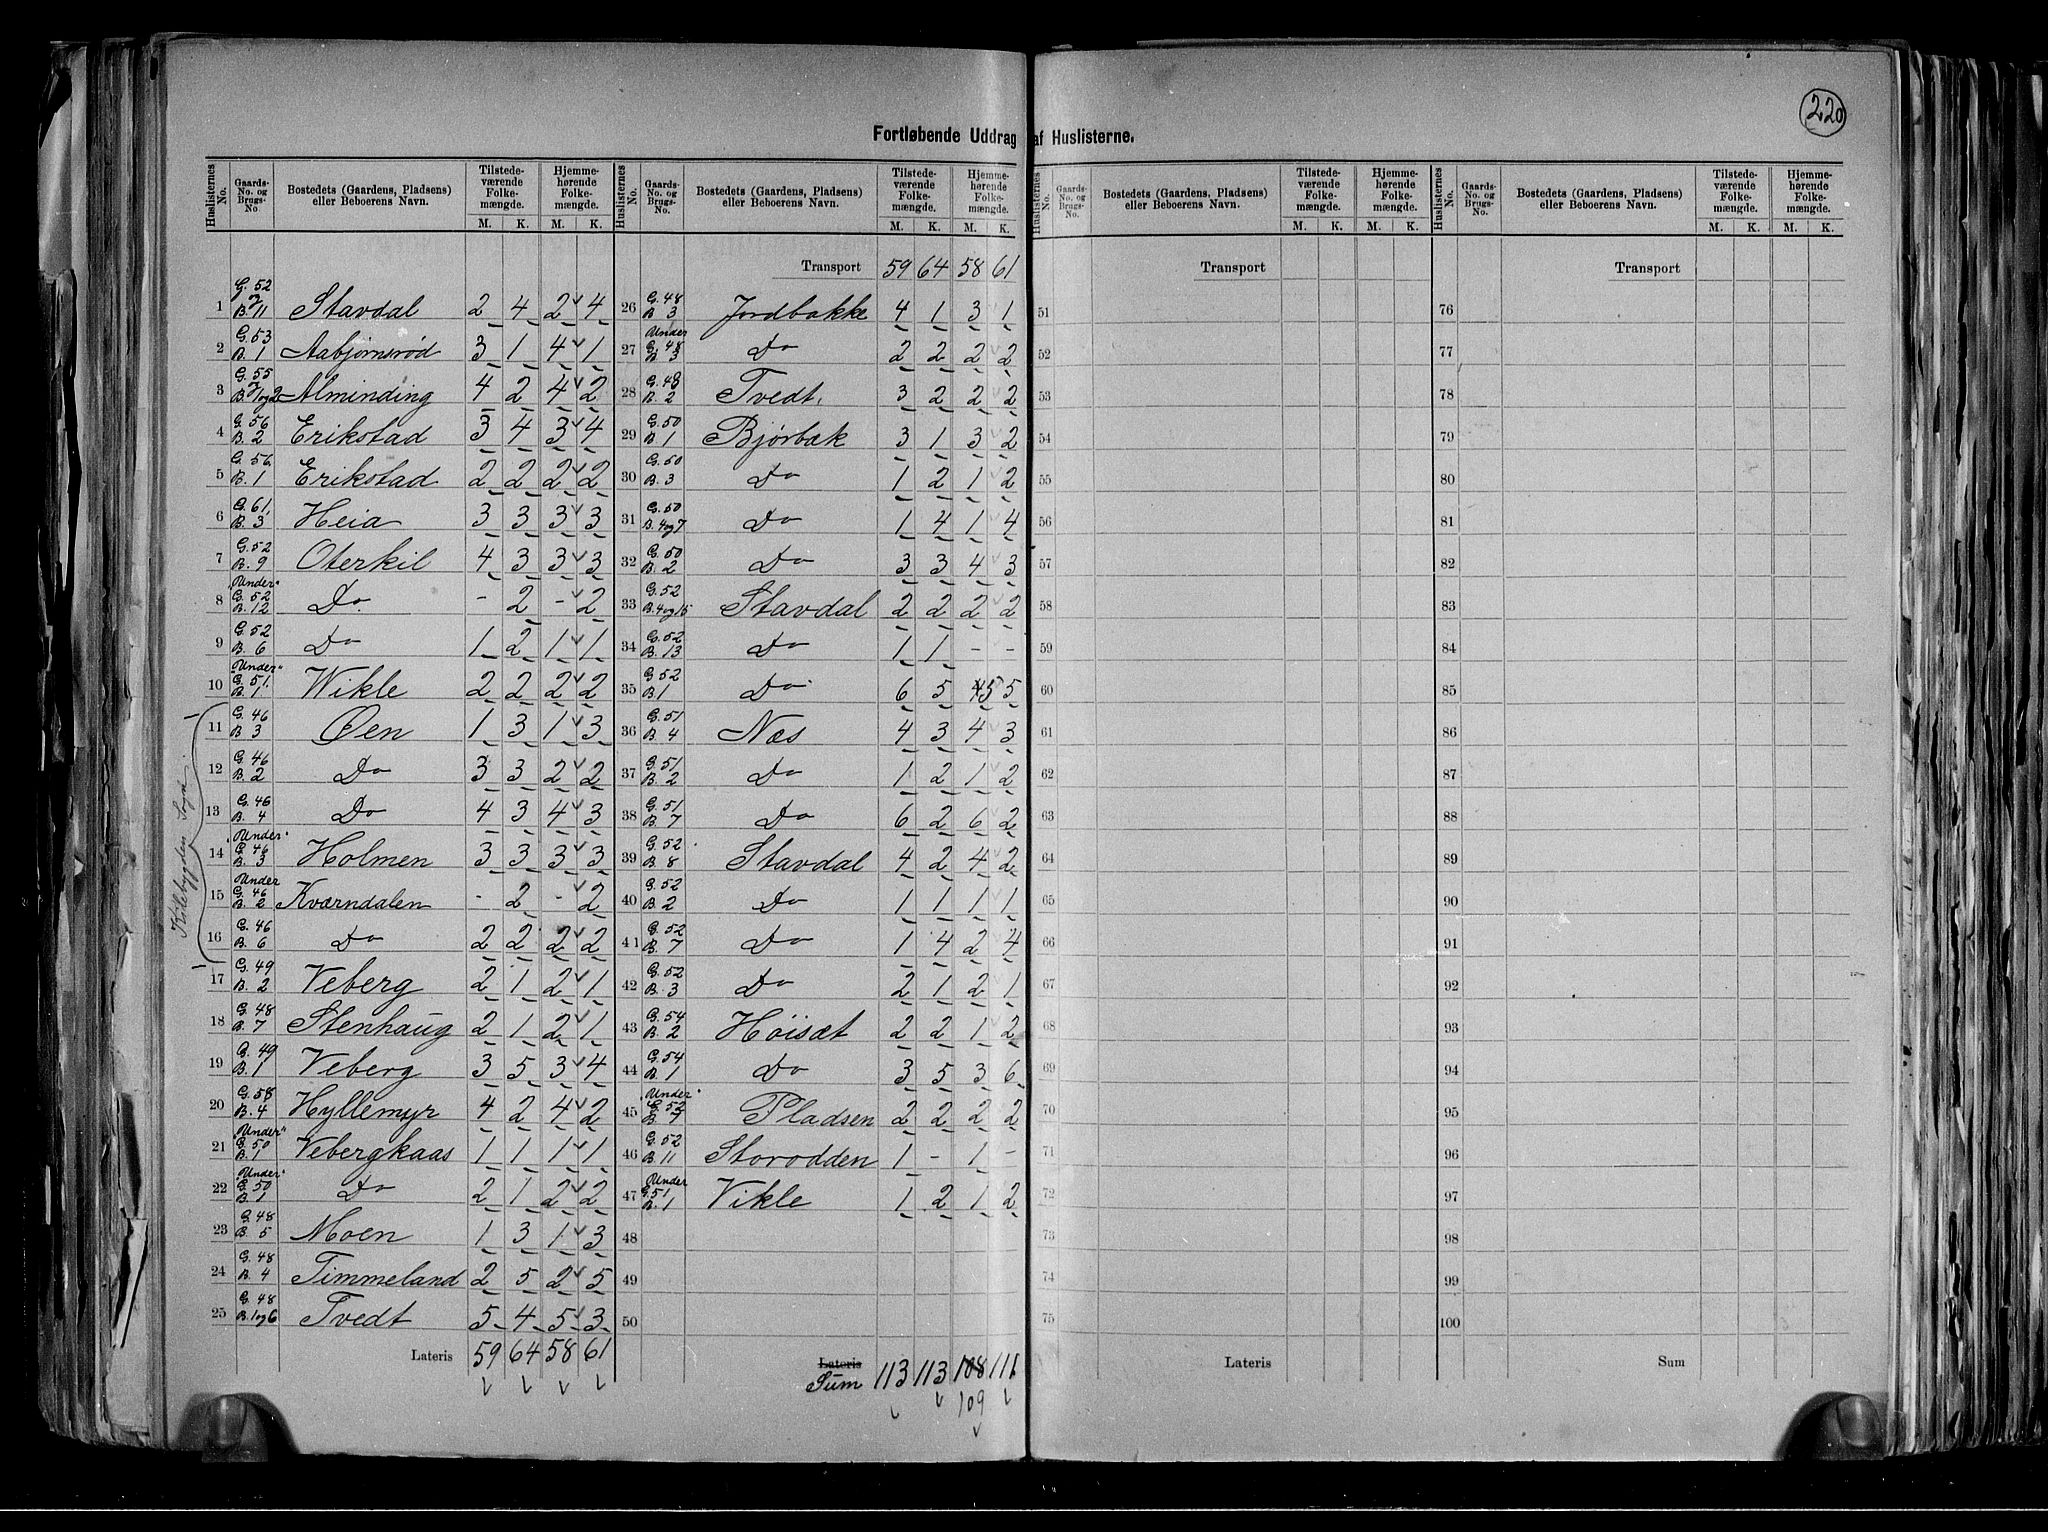 220
Fortløbende Uddrag af Huslisterne.
Huslisternes No. | Gaards-No. og Brugs-No. | Bostedets (Gaardens, Pladsens) eller Beboerens Navn. | Tilstedeværende Folkemængde. M. K. | Hjemmehørende Folkemængde. M. K.
1 G. 52 B. 11 Stavdal 2 4 2 4
2 G. 53 B. 1 Aabjørnsrød 3 1 4 1
3 G. 55 B. 1 og 2 Alminding 4 2 4 2
4 G. 56 B. 2 Erikstad 3 4 3 4
5 G. 56. B. 1 Erikstad 2 2 2 2
6 G. 61. B. 3 Heia 3 3 3 3
7 G. 52 B. 9 Oterkil 4 3 3 3
8 "Under" G. 52 B. 12 Do. - 2 - 2
9 G. 52 B. 6 Do 1 2 1 1
10 "Under" G. 51. B. 1 Wikle 2 2 2 2
Kilebygden Sogn.
11 G. 46 B. 3 Øen 1 3 1 3
12 G. 46 B. 2 Do 3 3 2 2
13 G. 46 B. 4 Do 4 3 4 3
14 "Under" G. 46 B. 3 Holmen 3 3 3 3
15 Under G. 46 B. 2 Kværndalen - 2 - 2
16 G. 46 B. 6 Do 2 2 2 2
17 G. 49 B. 2 Veberg 2 1 2 1
18 G. 48 B. 7 Stenhaug 2 1 2 1
19 G. 49 B. 1 Veberg 3 5 3 4
20 G. 58 B. 4 Hyllemyr 4 2 4 2
21 "Under" G. 50 B. 1 Vebergkaas 1 1 1 1
22 "Under" G. 50 B. 1 Do 2 1 2 2
23 G. 48 B. 5 Moen 1 3 1 3
24 G. 48 B. 4 Timmeland 2 5 2 5
25 G. 48 B. 1 og 6 Tvedt 5 4 5 3
Lateris 59 64 58 61
Huslisternes No. | Gaards-No. og Brugs-No. | Bostedets (Gaardens, Pladsens) eller Beboerens Navn. | Tilstedeværende Folkemængde. M. K. | Hjemmehørende Folkemængde. M. K.
Transport 59 64 58 61
26 G. 48 B 3 Jordbakke 4 1 3 1
27 Under G. 48 B. 3 Do 2 2 2 2
28 G. 48 B. 2 Tvedt. 3 2 2 2
29 G. 50 B. 1 Bjørbæk 3 1 3 2
30 G. 50 B. 3 Do 1 2 1 2
31 G. 50 B. 4 og 7 Do 1 4 1 4
32 G. 50 B. 2 Do 3 3 4 3
33 G. 52 B. 4 og 15 Stavdal 2 2 2 2
34 G. 52 B. 13 Do 1 1 - -
35 G 52 B. 1 Do 6 5 4 5 5
36 G. 51 B. 4 Næs 4 3 4 3
37 G. 51 B. 2 Do 1 2 1 2
38 G. 51 B. 7 Do 6 2 6 2
39 G. 52 B. 8 Stavdal 4 2 4 2
40 G. 52 B. 2 Do 1 1 1 1
41 G. 52 B. 7 Do 1 4 2 4
42 G. 52 B. 3 Do 2 1 2 1
43 G. 54 B. 2 Høisæt 2 2 1 2
44 G. 54 B. 1 Do 3 5 3 6
45 "Under" G. 52 B. 7 Pladsen 2 2 2 2
46 G. 52 B. 11 Storodden 1 - 1 -
47 Under G. 51 B. 1 Vikle 1 2 1 2
48
49
50
Lateris
Sum 113 113 108 111
109
Huslisternes No. | Gaards-No. og Brugs-No. | Bostedets (Gaardens, Pladsens) eller Beboerens Navn. | Tilstedeværende Folkemængde. M. K. | Hjemmehørende Folkemængde. M. K.
Transport
51
52
53
54
55
56
57
58
59
60
61
62
63
64
65
66
67
68
69
70
71
72
73
74
75
Lateris
Huslisternes No. | Gaards-No. og Brugs-No. | Bostedets (Gaardens, Pladsens) eller Beboerens Navn. | Tilstedeværende Folkemængde. M. K. | Hjemmehørende Folkemængde. M. K.
Transport
76
77
78
79
80
81
82
83
84
85
86
87
88
89
90
91
92
93
94
95
96
97
98
99
100
Sum